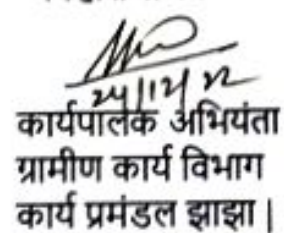 24/12/22
कार्यपालक अभियंता
ग्रामीण कार्य विभाग
कार्य प्रमंडल झाझा |